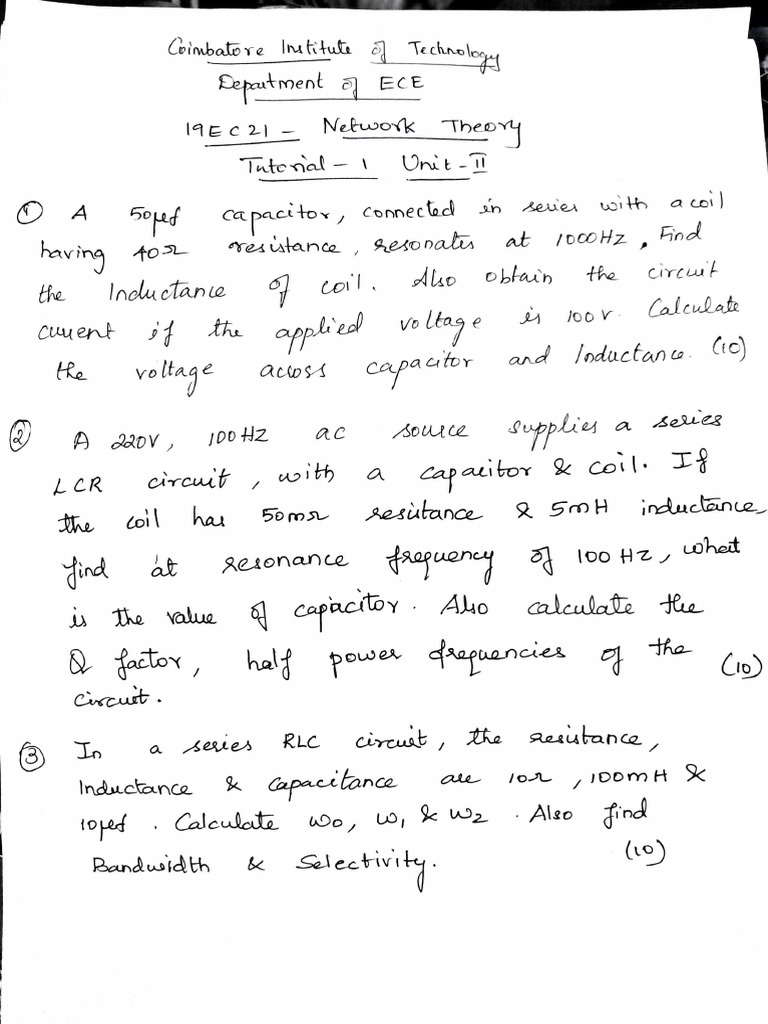 Coimbatore Institute of Technology
Department of ECE
19EC21 - Network Theory
Tutorial - 1 Unit - II
① A 50μf capacitor, connected in series with a coil
having 40Ω resistance, resonates at 1000HZ. Find
the Inductance of coil. Also obtain the circuit
current if the applied voltage is 100V. Calculate
the voltage across capacitor and Inductance. (10)
② A 220V, 100HZ ac source supplies a series
LCR circuit, with a capacitor & coil. If
the coil has 50mΩ resistance & 5mH inductance,
find at resonance frequency of 100 HZ, what
is the value of capacitor. Also calculate the
Q factor, half power frequencies of the
circuit. (10)
③ In a series RLC circuit, the resistance,
Inductance & Capacitance are 10Ω, 100mH &
10μf. Calculate ω0, ω1 & ω2. Also find
Bandwidth & Selectivity. (10)